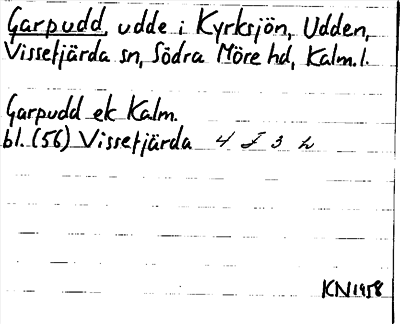 Garpudd, udde i Kyrksjön, Udden,
Vissefjärda sn, Södra Möre hd, Kalm.l.
Garpudd ek Kalm.
bl. (56) Vissefjärda 4 I 3 h
KN1958